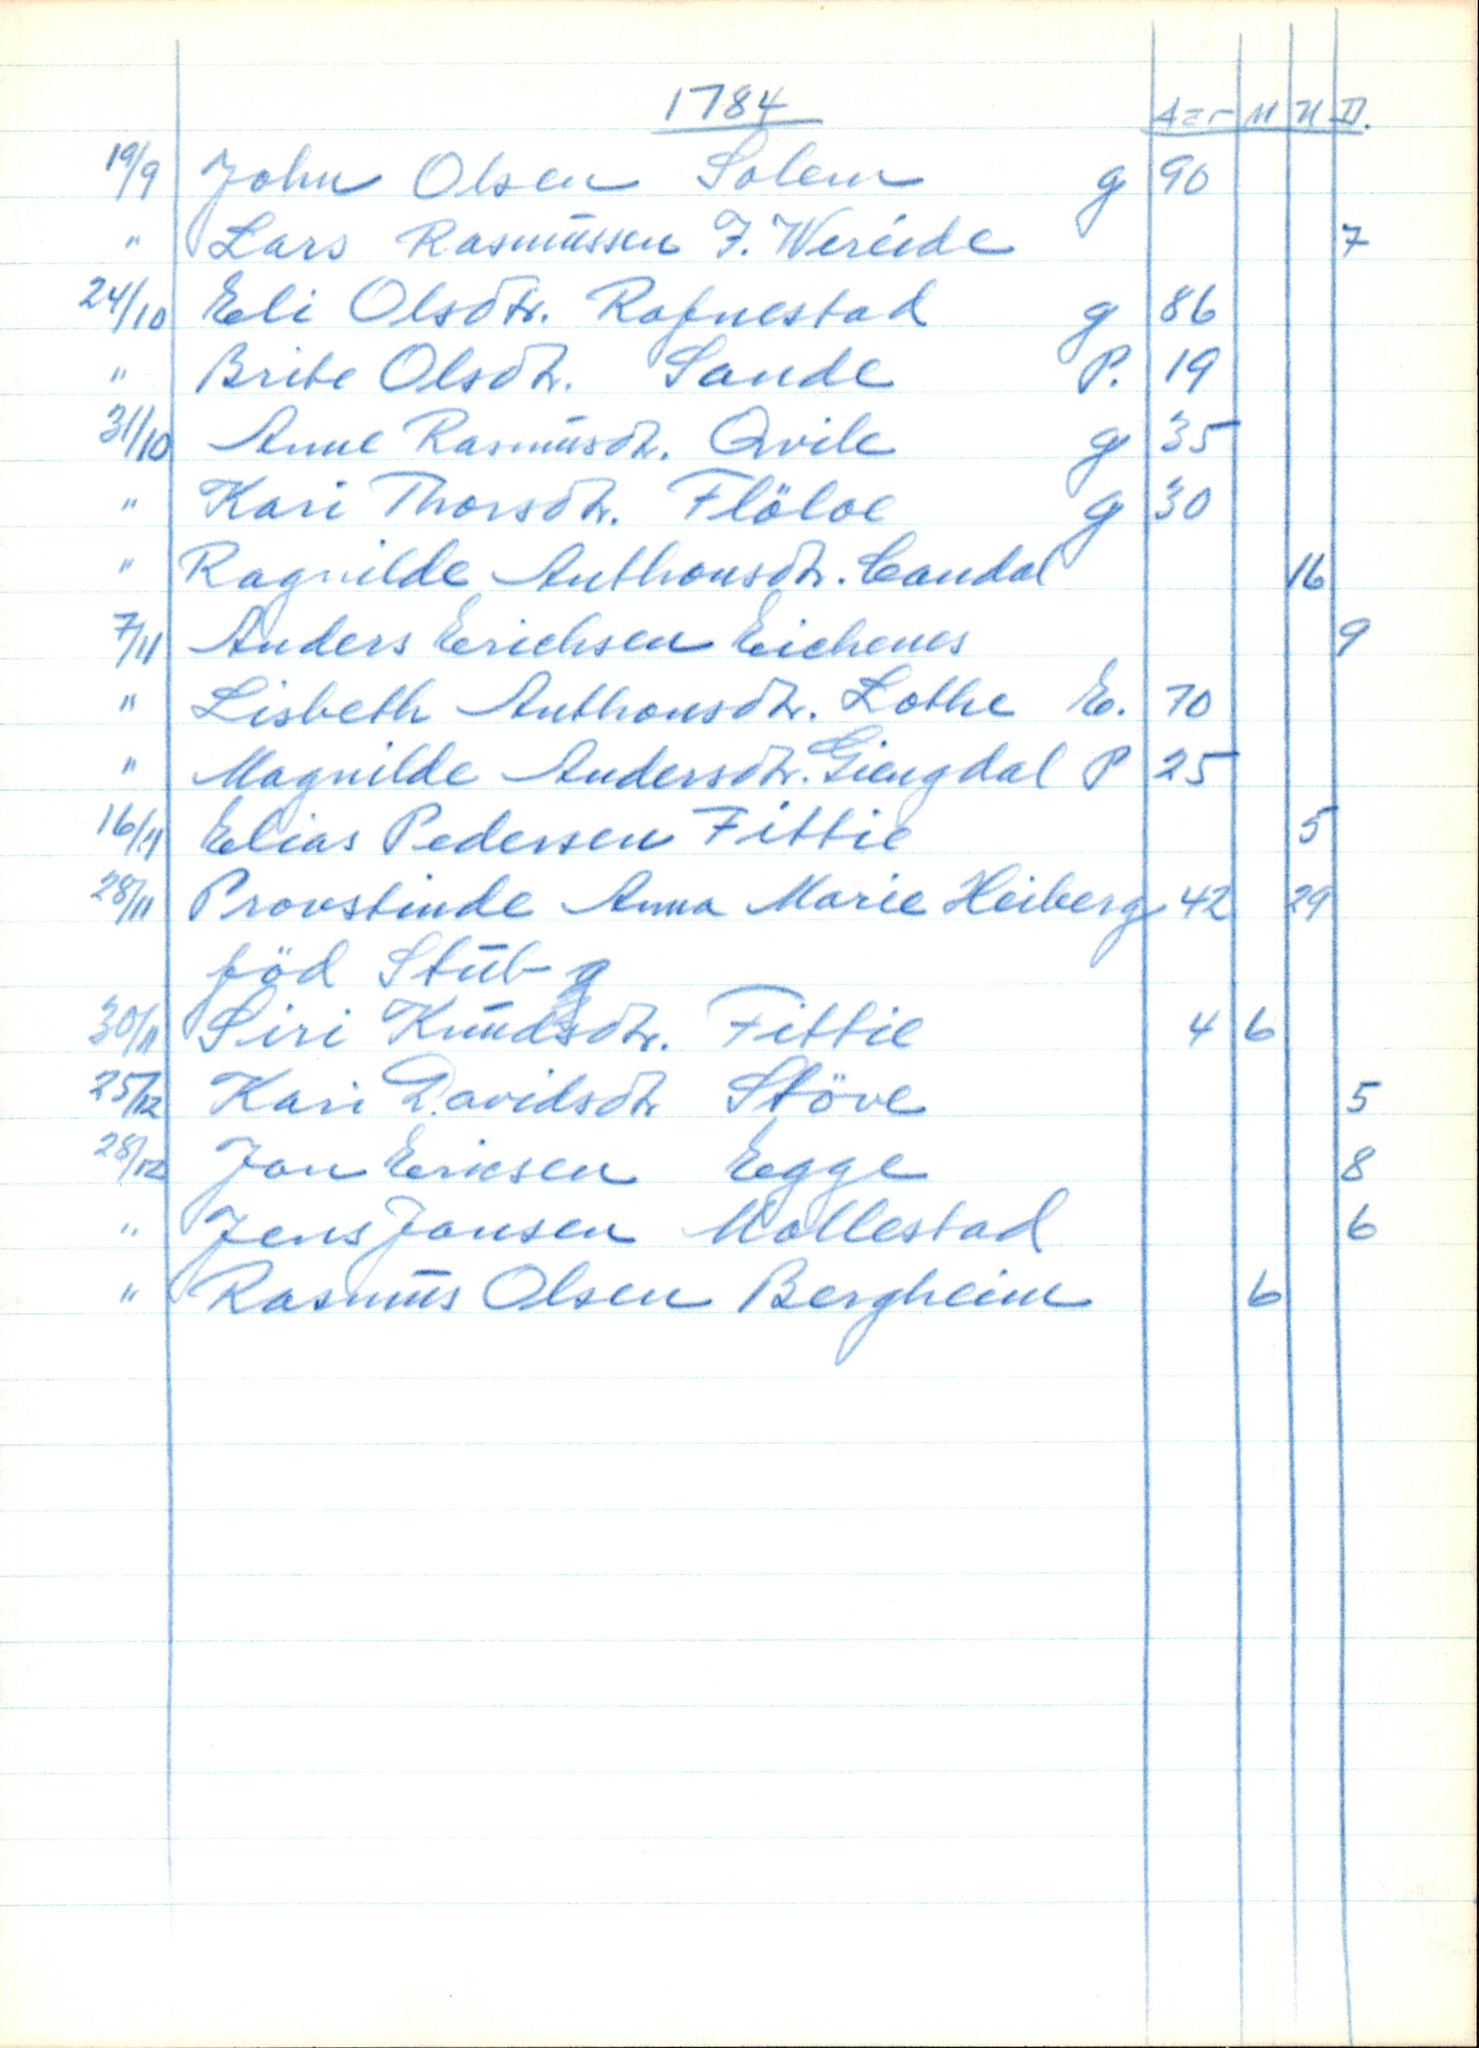 1784
Aar M U D.
19/9 John Olsen Solem g 90
" Lars Rasmussen F. Wereide 7
24/10 Eli Olsdtr. Rafnestad g 86
" Brite Olsdtr. Sande P. 19
31/10 Anne Rasmusdtr. Qvile g 35
" Kari Thorsdtr. Flöloe g 30
" Ragnilde Anthonsdtr. Candal 16
7/11 Anders Erichsen Eichenes 9
" Lisbeth Anthonsdtr. Lothe E. 70
" Magnilde Andersdtr. Giengdal P 25
16/11 Elias Pedersen Fittie 5
28/11 Provstinde Anna Marie Heiberg 42 29
föd Stub g
30/11 Siri Knudsdtr. Fittie 4 6
25/12 Kari Davidsdtr Stöve 5
28/12 Jon Ericsen Egge 8
" Jens Jonsen Mollestad 6
" Rasmus Olsen Bergheim 6